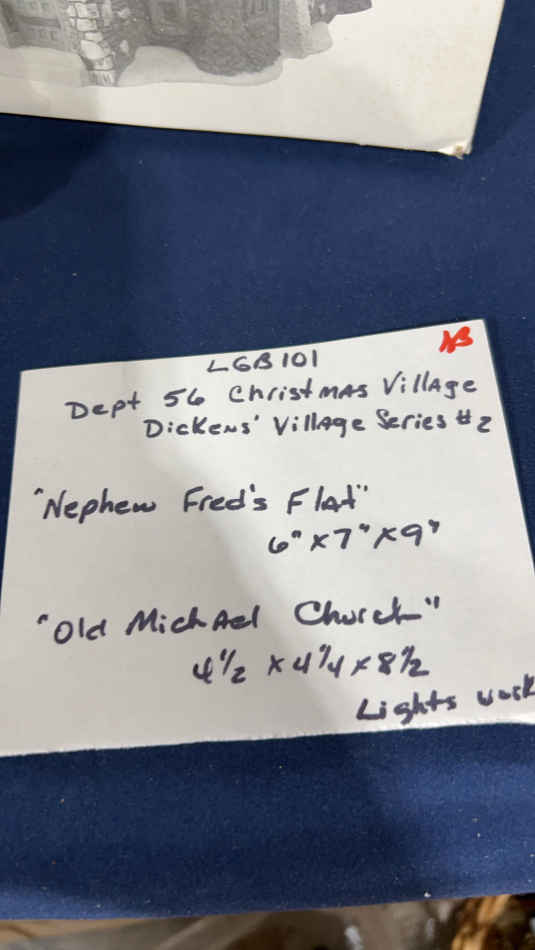 LGB101
Dept 56 Christmas Village
Dickens' Village Series #2
"Nephew Fred's Flat"
6" x 7" x 9"
"Old Michael Church"
4 1/2 x 4 1/4 x 8 1/2
Lights work